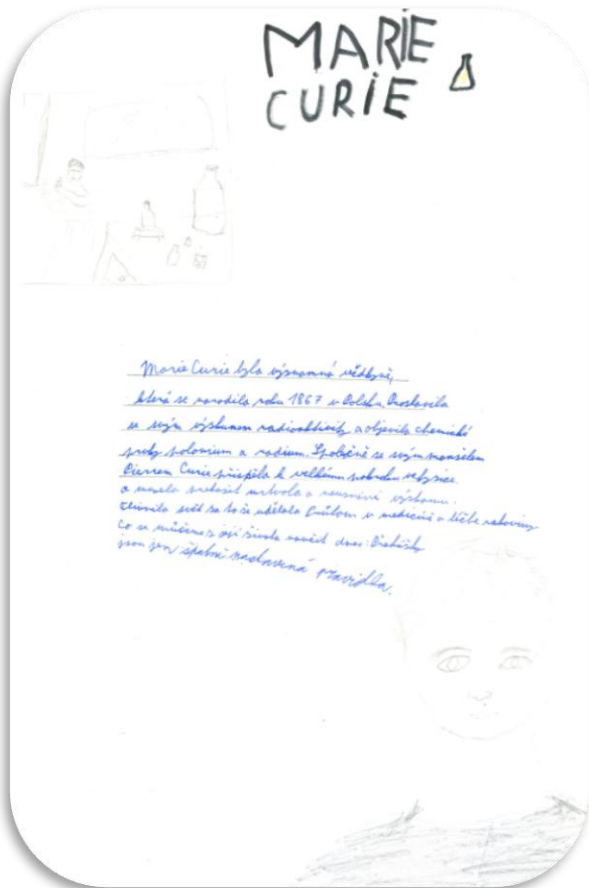 MARIE
CURIE
Marie Curie byla významná vědkyně,
která se narodila roku 1867 v Polsku. Proslavila
se svým výzkumem radioaktivity a objevila chemické
prvky polonium a radium. Společně se svým manželem
Pierrem Curie přispěla k velkému pokroku ve fyzice.
a musela překonat a výzkumu.
svět za to že udělala průlom v medicíně a léčbě rakoviny
Co se můžeme z její života naučit dnes: Překážky
jsou jen špatně nastavená pravidla.